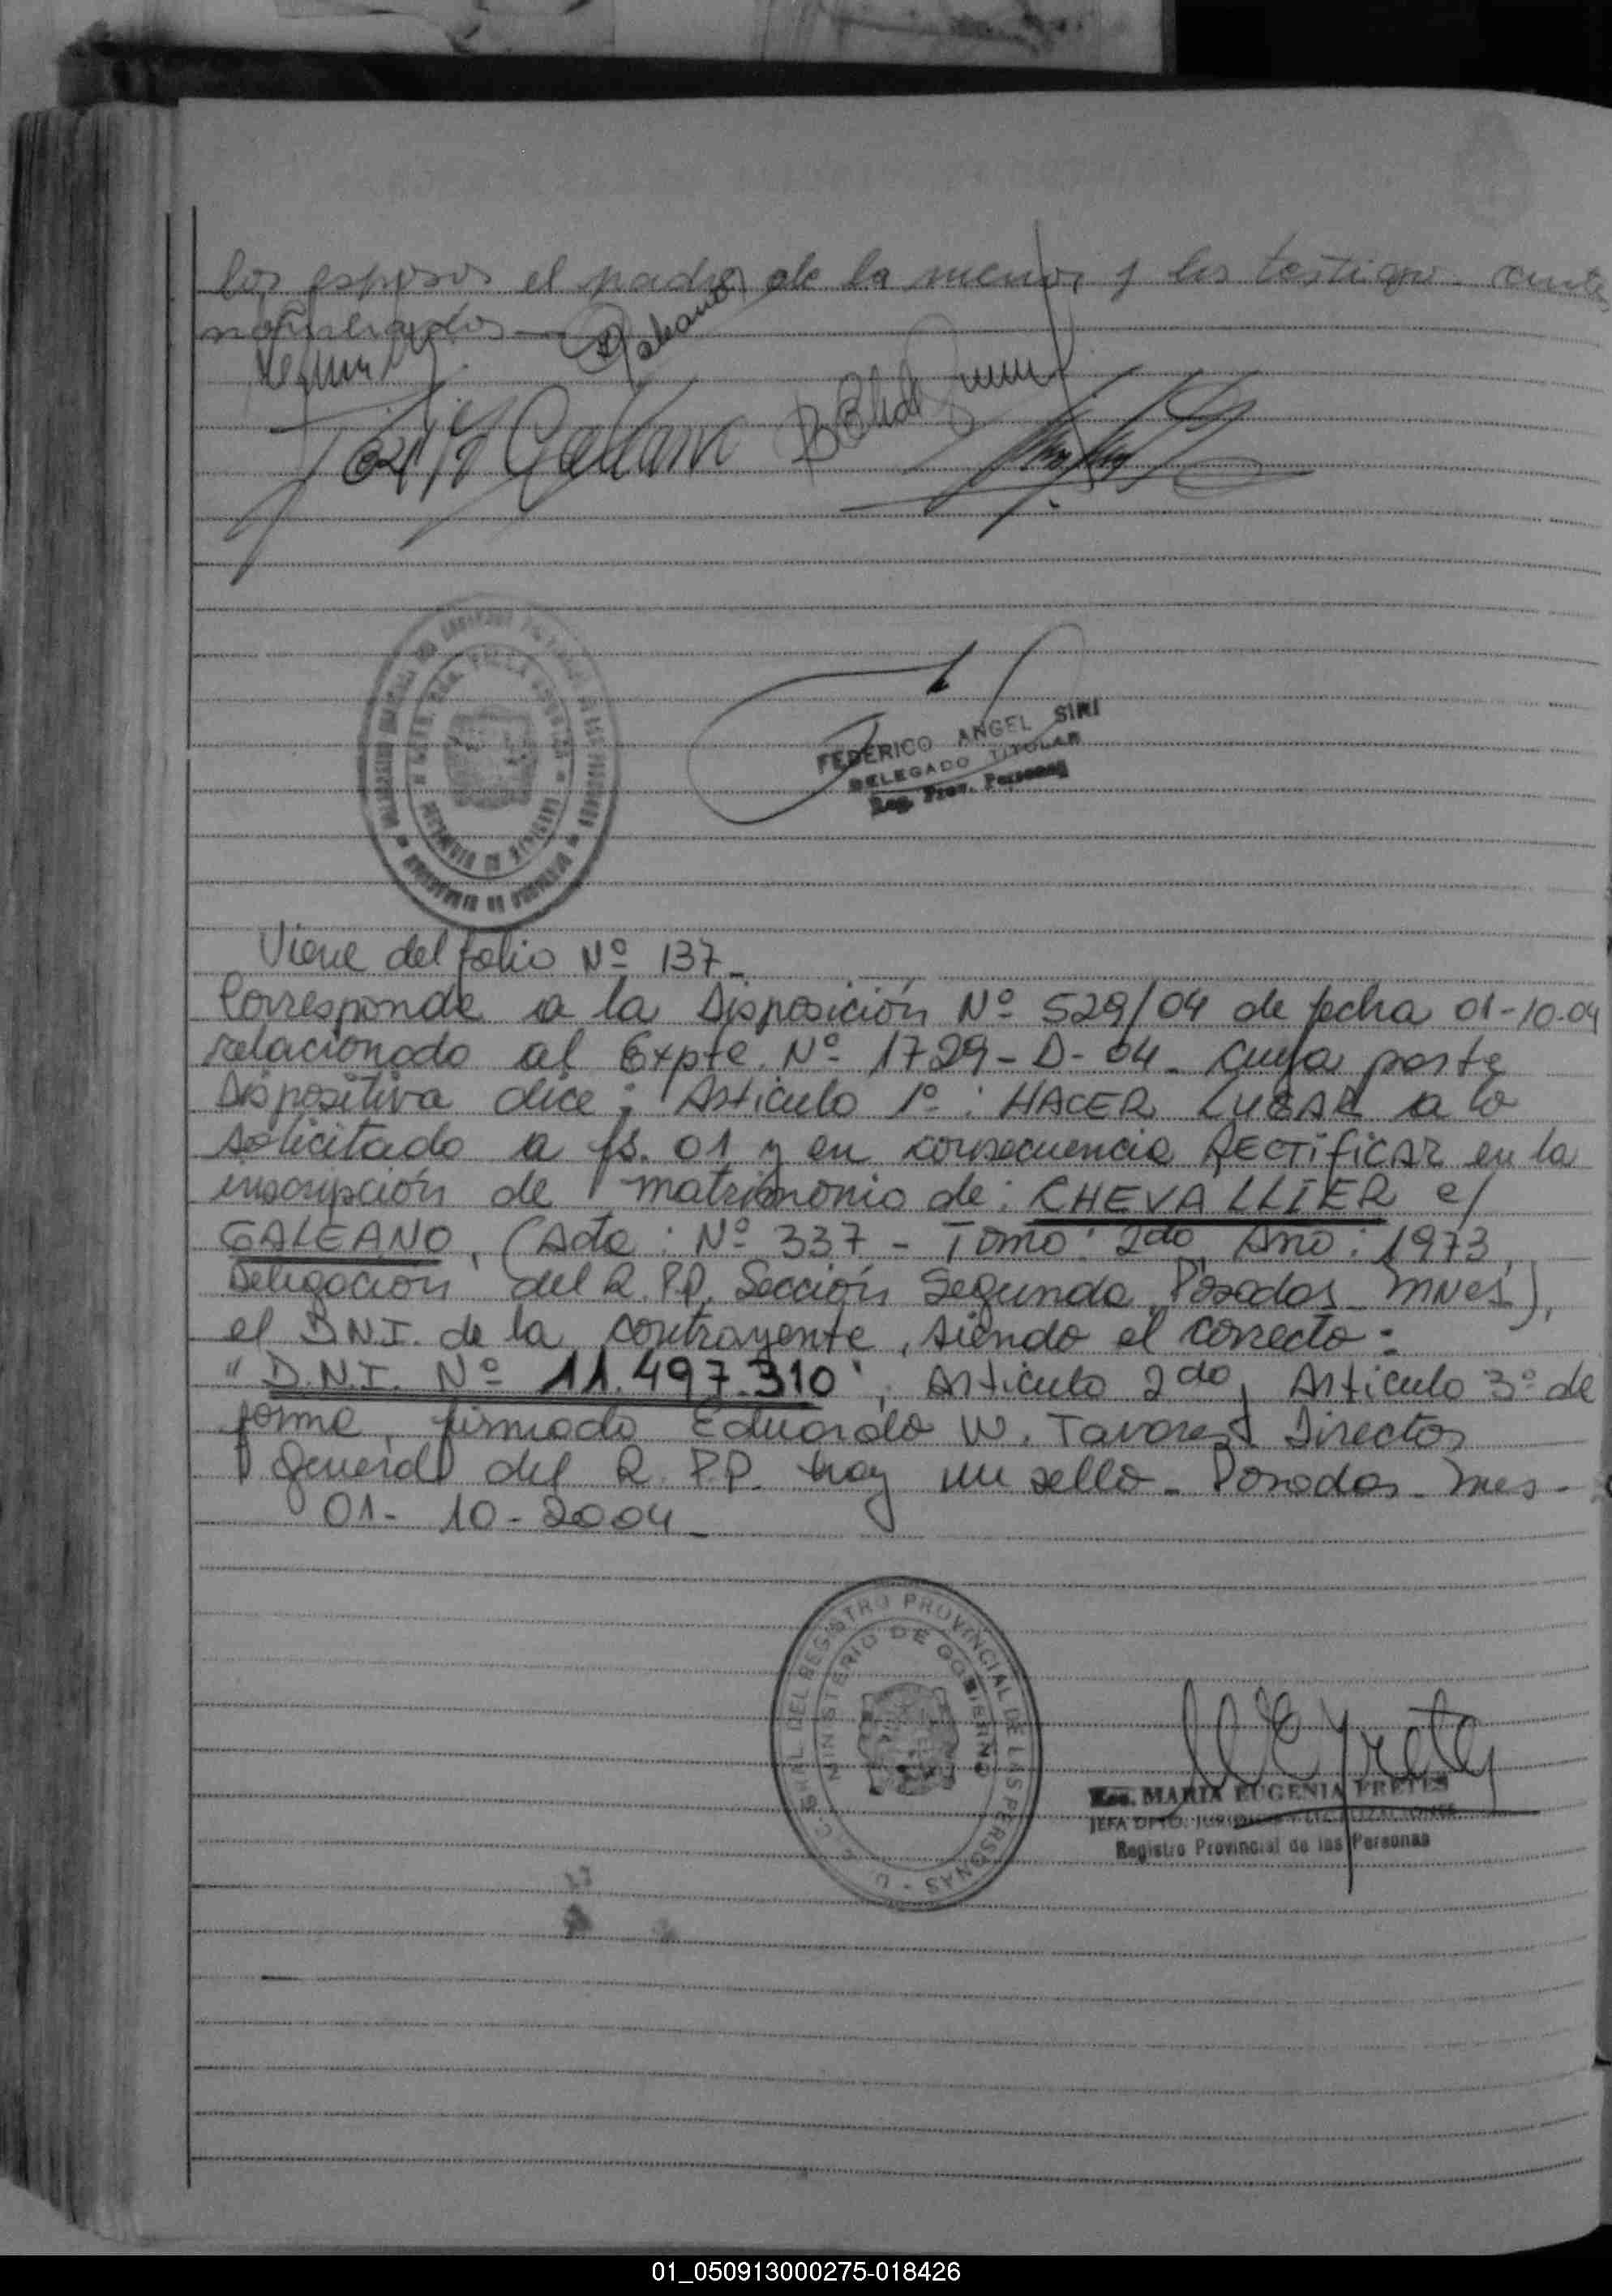 los esposos el padre de la menor y los testigos ante
nombrados
Galeano
FEDERICO ANGEL SIRI
DELEGADO TITULAR
Reg. Prov. Personas
Viene del folio Nº 137_
Corresponde a la Disposición Nº 529/04 de fecha 01-10-04
relacionado al Expte. Nº 1729-D-04_ cuya parte
Dispositiva dice: Articulo 1º: HACER LUGAR a lo
solicitado a fs. 01 y en consecuencia RECTIFICAR en la
inscripción de matrimonio de: CHEVALLIER c/
GALEANO, (Acta: Nº 337 - Tomo: 2do, Año: 1973,
Delegación del R.P.P. Sección Segunda, Posadas_ Mnes),
el D.N.I. de la contrayente, siendo el correcto:
"D.N.I. Nº 11.497.310", Articulo 2do, Articulo 3º de
forma, firmado Eduardo W. Tavares_ Director
General del R.P.P. hay un sello_ Posadas_ Mnes-
01- 10-2004_
GRAL DEL REGISTRO PROVINCIAL DE LAS PERSONAS
MINISTERIO DE GOBIERNO
MARIA EUGENIA FRETES
JEFA DPTO. JURIDICO
Registro Provincial de las Personas
01_050913000275-018426